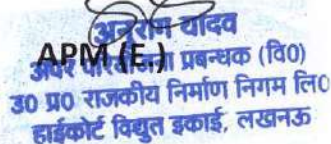 अनुराग यादव
APM (E.)
अपर परियोजना प्रबन्धक (वि0)
उ0 प्र0 राजकीय निर्माण निगम लि0
हाईकोर्ट विद्युत इकाई, लखनऊ